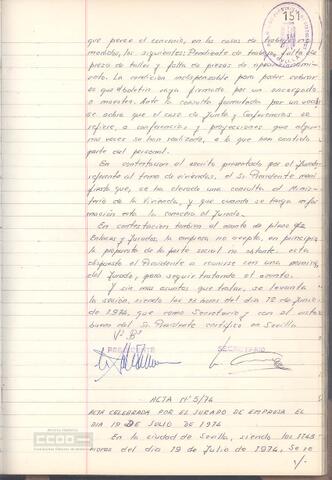 151
que parece el convenio, en los casos de trabajos no
medidos, los siguientes: Pendiente de trabajo, falta de
pieza de taller y falta de piezas de aprovisionamiento
miento. La condición indispensable para poder cobrar
es que el boletín vaya firmado por un encargado
o maestro. Ante la consulta formulada por un vocal
se aclara que el caso de Junta y Conferencias se
refiere a conferencias y proyecciones que algunas
veces se han realizado, a la que han asistido
parte del personal.
En contestación al escrito presentado por el Jurado
referente al tema de viviendas, el Sr. Presidente manifiesta
que, se ha elevado una consulta al Ministerio
de la Vivienda, y que cuando se tenga información
esta la conocerá el Jurado.
En contestación también al asunto de plazo de
Enlaces y Jurados, la empresa no acepta, en principio
la propuesta de la parte social no obstante está
dispuesto el Presidente a reunirse con una comisión
del Jurado, para seguir tratando el asunto.
Y sin más asuntos que tratar, se levanta
la sesión, siendo las horas del día 12 de Junio
de 1974, que como Secretario y con el visto
bueno del Sr. Presidente certifico en Sevilla
Vº Bº
PRESIDENTE SECRETARIO
ACTA Nº 5/74
ACTA CELEBRADA POR EL JURADO DE EMPRESA EL
DIA 19 DE JULIO DE 1974
En la ciudad de Sevilla, siendo las 17'45
horas del día 19 de Julio de 1974. Se re
·/·
CCOO